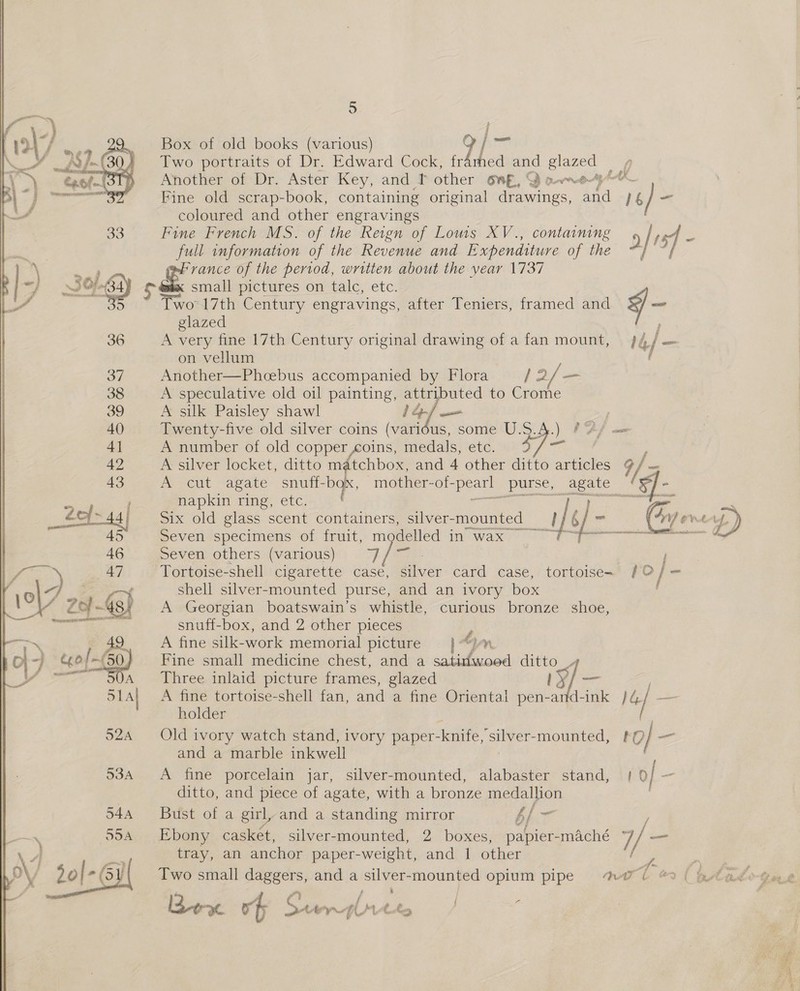 5
29 Box of old books (various) 9/-
25/- (30) Two portraits of Dr. Edward Cock, framed and glazed
(31) Another of Dr. Aster Key, and 1 other one,
32 Fine old scrap-book, containing original drawings, and 16/-
coloured and other engravings
33 Fine French MS. of the Reign of Louis XV., containing
full information of the Revenue and Expenditure of the
France of the period, written about the year 1737
30/- (34) Six small pictures on talc, etc.
35 Two 17th Century engravings, after Teniers, framed and
glazed
36 A very fine 17th Century original drawing of a fan mount, 14/-
on vellum
37 Another—Phœbus accompanied by Flora 12/-
38 A speculative old oil painting, attributed to Crome
39 A silk Paisley shawl 14/-
40 Twenty-five old silver coins (various, some U.S.A.) 12/-
41 A number of old copper coins, medals, etc.
42 A silver locket, ditto matchbox, and 4 other ditto articles 9/-
43 A cut agate snuff-box, mother-of-pearl purse, agate
napkin ring, etc.
20/- 44 Six old glass scent containers, silver-mounted 1/6/-
45 Seven specimens of fruit, modelled in wax
46 Seven others (various) 7/-
47 Tortoise-shell cigarette case, silver card case, tortoise- 10/-
shell silver-mounted purse, and an ivory box
20/- (48) A Georgian boatswain's whistle, curious bronze shoe,
snuff-box, and 2 other pieces
49 A fine silk-work memorial picture
(50) Fine small medicine chest, and a satinwood ditto
50A Three inlaid picture frames, glazed
51A A fine tortoise-shell fan, and a fine Oriental pen-and-ink 14/-
holder
52A Old ivory watch stand, ivory paper-knife, silver-mounted, 10/-
and a marble inkwell
53A A fine porcelain jar, silver-mounted, alabaster stand, 10/-
ditto, and piece of agate, with a bronze medallion
54A Bust of a girl, and a standing mirror 6/-
55A Ebony casket, silver-mounted, 2 boxes, papier-maché 7/-
tray, an anchor paper-weight, and 1 other
20/- (51) Two small daggers, and a silver-mounted opium pipe
Box of